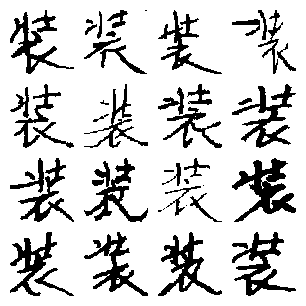 装装装装
装装装装
装装装装
装装装装